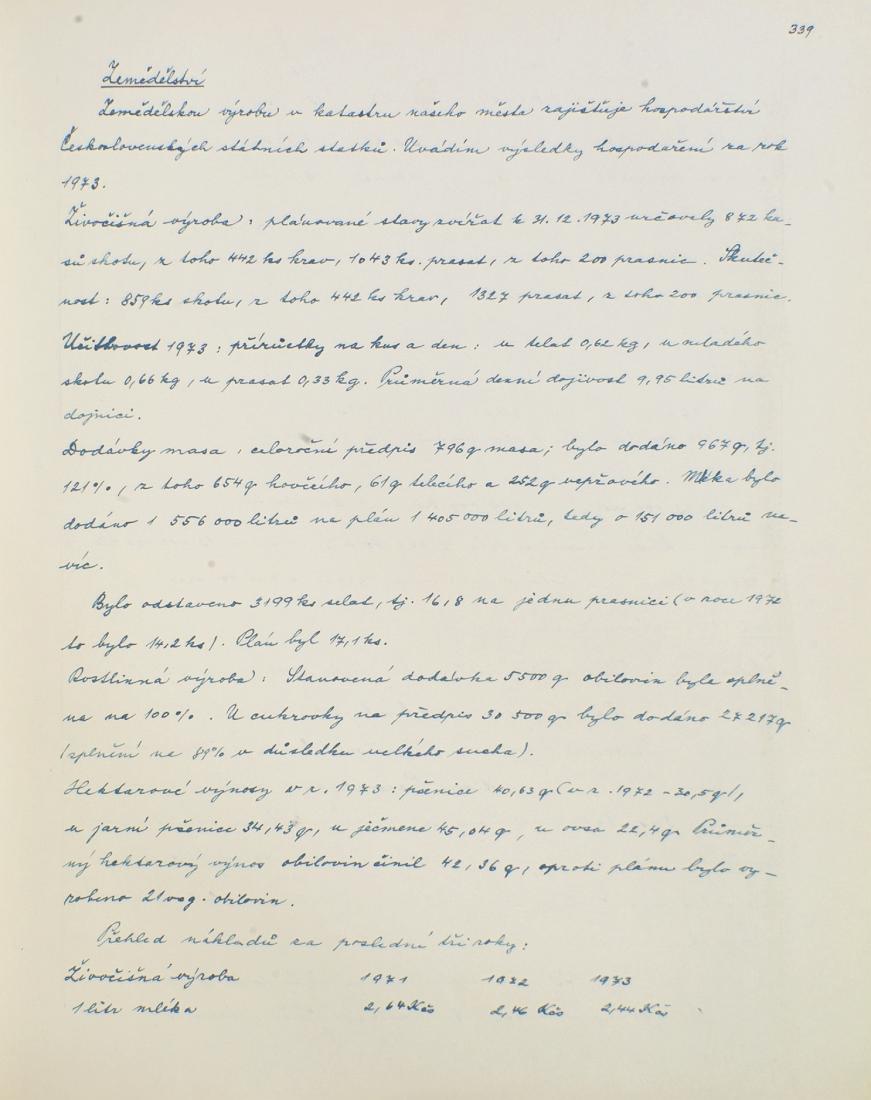 339
Zemědělství
Zemědělskou výrobu v katastru našeho města zajišťuje hospodářství
Československých státních statků. Uvádím výsledky hospodaření za rok
1973.
Živočišná výroba: plánované stavy zvířat k 31.12.1973 určovaly 872 ku-
sů skotu, z toho 442 ks krav, 1043 ks. prasat, z toho 200 prasnic. Skuteč-
nost: 859 ks skotu, z toho 442 ks krav, 1327 prasat, z toho 200 prasnic.
Užitkovost 1973: přírůstky na kus a den: u telat 0,62 kg, u mladého
skotu 0,66 kg, u prasat 0,33 kg. Průměrná denní dojivost 9,95 litrů na
dojnici.
Dodávky masa: celoroční předpis 796 q masa; bylo dodáno 967 q, tj.
121%, z toho 654 q hovězího, 61 q telecího a 252 q vepřového. Mléka bylo
dodáno 1 556 000 litrů na plán 1 405 000 litrů, tedy o 151 000 litrů na-
víc.
Bylo odstaveno 3199 ks selat, tj. 16,8 na jednu prasnici (v roce 1972
to bylo 14,2 ks). Plán byl 17,1 ks.
Rostlinná výroba: Stanovená dodávka 5500 q obilovin byla splně-
na na 100%. U cukrovky na předpis 30 500 q bylo dodáno 27 217 q
(splnění na 89% v důsledku velkého sucha).
Hektarové výnosy v r. 1973: pšenice 40,63 q (v r. 1972 - 30,5 q),
u jarní pšenice 34,43 q, u ječmene 45,04 q, u ovsa 22,4 q. Průměr-
ný hektarový výnos obilovin činil 42,36 q, oproti plánu bylo vy-
robeno 21 vag. obilovin.
Přehled nákladů za poslední tři roky:
Živočišná výroba 1971 1972 1973
1 litr mléka 2,64 Kčs 2,46 Kčs 2,44 Kčs